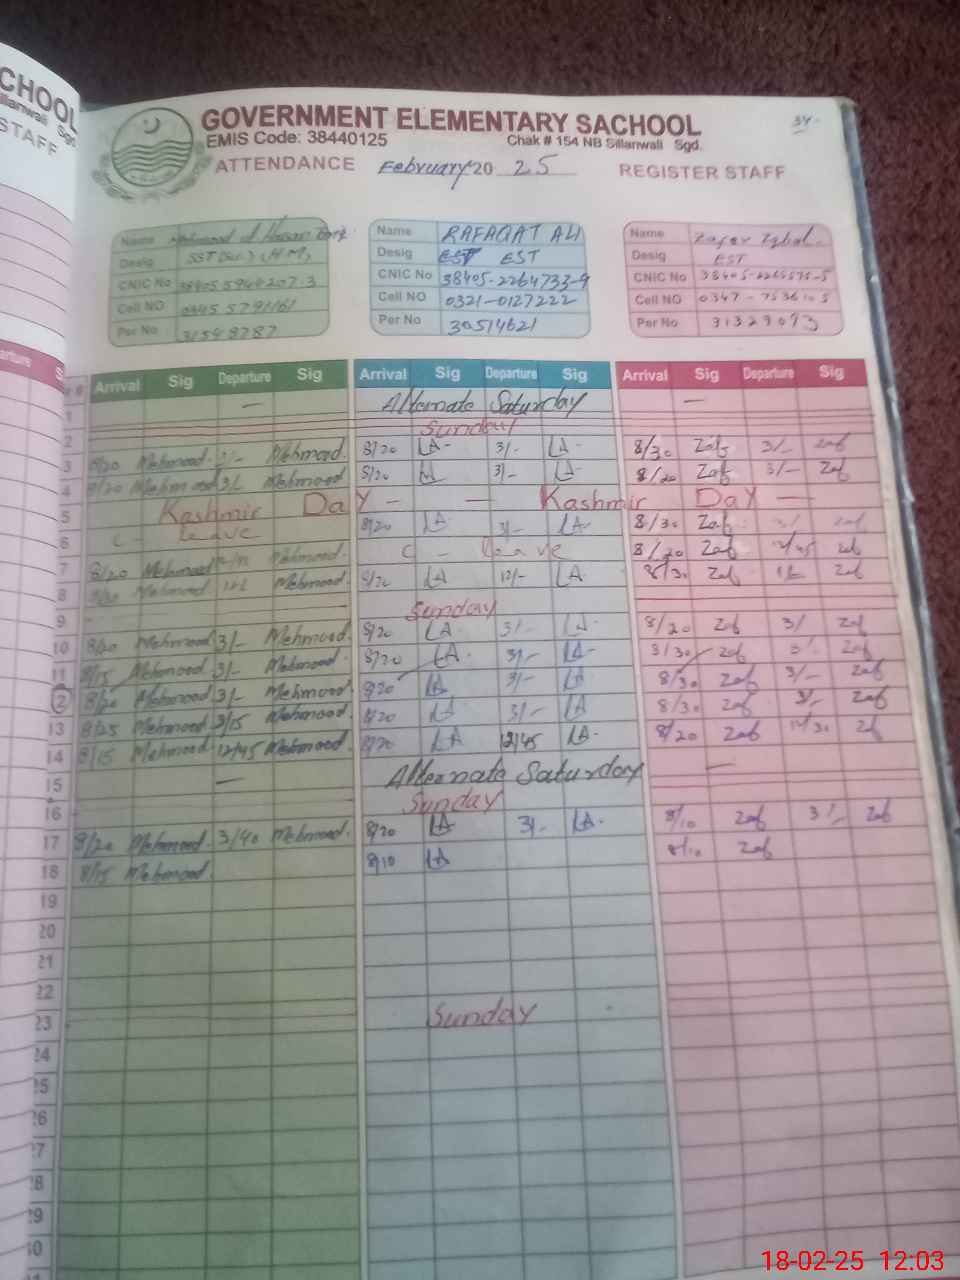 CHOOL
Sillanwali Sgd
STAFF
34-
GOVERNMENT ELEMENTARY SACHOOL
EMIS Code: 38440125 Chak # 154 NB Sillanwali Sgd.
ATTENDANCE February 20 25 REGISTER STAFF
Name Mehmood
Desig SST
CNIC No
Cell NO 0345 5791161
Per No 31548787
Name RAFAQAT ALI
Desig EST EST
CNIC No 38405-2264733-9
Cell NO 0321-0127222
Per No 30514621
Name Zafar Iqbal
Desig EST
CNIC No
Cell NO
Per No 31329093
arture
Arrival Sig Departure Sig Arrival Sig Departure Sig Arrival Sig Departure Sig
1 — Alternate Saturday —
2 Sunday
3 8/20 Mehmood 3/- Mehmood 8/20 LA 3/- LA 8/30 Zaf 3/- Zaf
4 8/20 Mehmood 3/- Mehmood 8/20 LA 3/- LA 8/20 Zaf 3/- Zaf
5 Kashmir Day — — Kashmir Day —
6 C - leave 8/20 LA 3/- LA 8/30 Zaf 3/- Zaf
7 8/20 Mehmood Mehmood C - leave 8/20 Zaf 12/45 Zaf
8 8/20 Mehmood Mehmood 8/20 LA 12/- LA 8/30 Zaf Zaf
9 Sunday
10 8/20 Mehmood 3/- Mehmood 8/20 LA 3/- LA 8/20 Zaf 3/ Zaf
11 8/15 Mehmood 3/- Mehmood 8/20 LA 3/- LA 8/30 Zaf 3/- Zaf
12 8/20 Mehmood 3/- Mehmood 8/20 LA 3/- LA 8/30 Zaf 3/- Zaf
13 8/25 Mehmood 3/15 Mehmood 8/20 LA 3/- LA 8/30 Zaf 3/- Zaf
14 8/15 Mehmood 12/45 Mehmood 8/20 LA 12/45 LA 8/20 Zaf 12/30 Zaf
15 — Alternate Saturday —
16 Sunday
17 8/20 Mehmood 3/40 Mehmood 8/20 LA 3/- LA 8/10 Zaf 3/- Zaf
18 8/15 Mehmood 8/10 LA 8/10 Zaf
19
20
21
22
23 Sunday
24
25
26
27
28
29
30
18-02-25 12:03